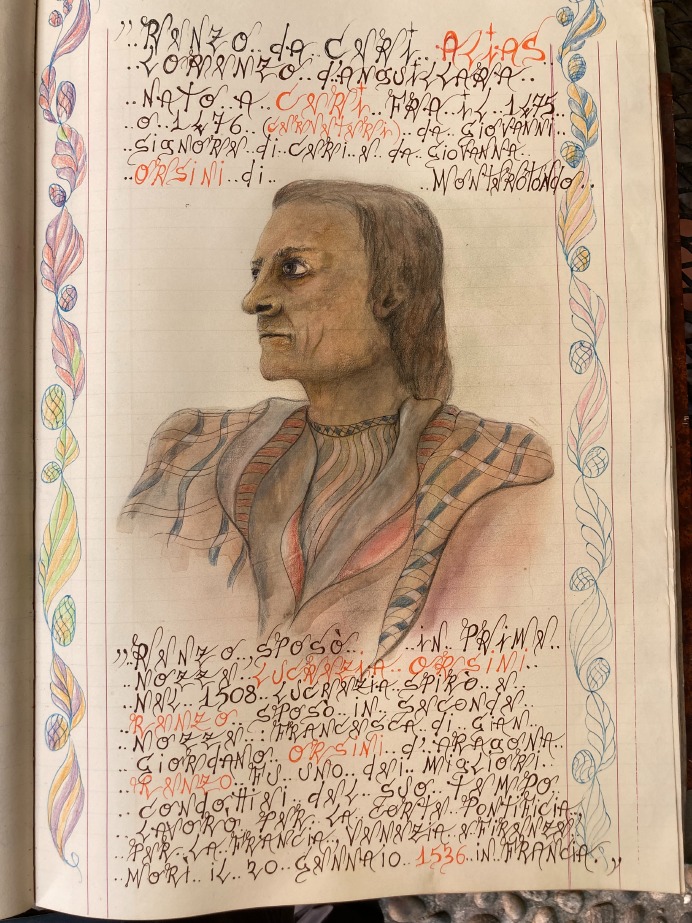 „..RENZO..da CERI..ALIAS
LORENZO..d'ANGUILLARA..
..NATO A..CERI..FRA IL..1475..
..O..1476..(CERVETERI)..da GIOVANNI..
SIGNORE..di..CERI..E..da GIOVANNA..
..ORSINI..di..  ..MONTEROTONDO..
„..RENZO..SPOSÒ..  ..IN PRIME..
..NOZZE..LUCREZIA..ORSINI..
..NEL..1508..LUCREZIA SPIRÒ..E
RENZO..SPOSÒ IN SECONDE
NOZZE..FRANCESCA..di..GIAN..
GIORDANO..ORSINI..d'ARAGONA..
..RENZO..FU..UNO..dEI..MIGLIORI..
..CONdOttiERI..dEL SUO..TEMPO..
..LAVORÒ PER..LA CORTE PONTIFICIA,
..PER..LA FRANCIA, VENEZIA E FIRENZE
..MORÌ..IL 20..GENNAIO..1536..IN FRANCIA.„